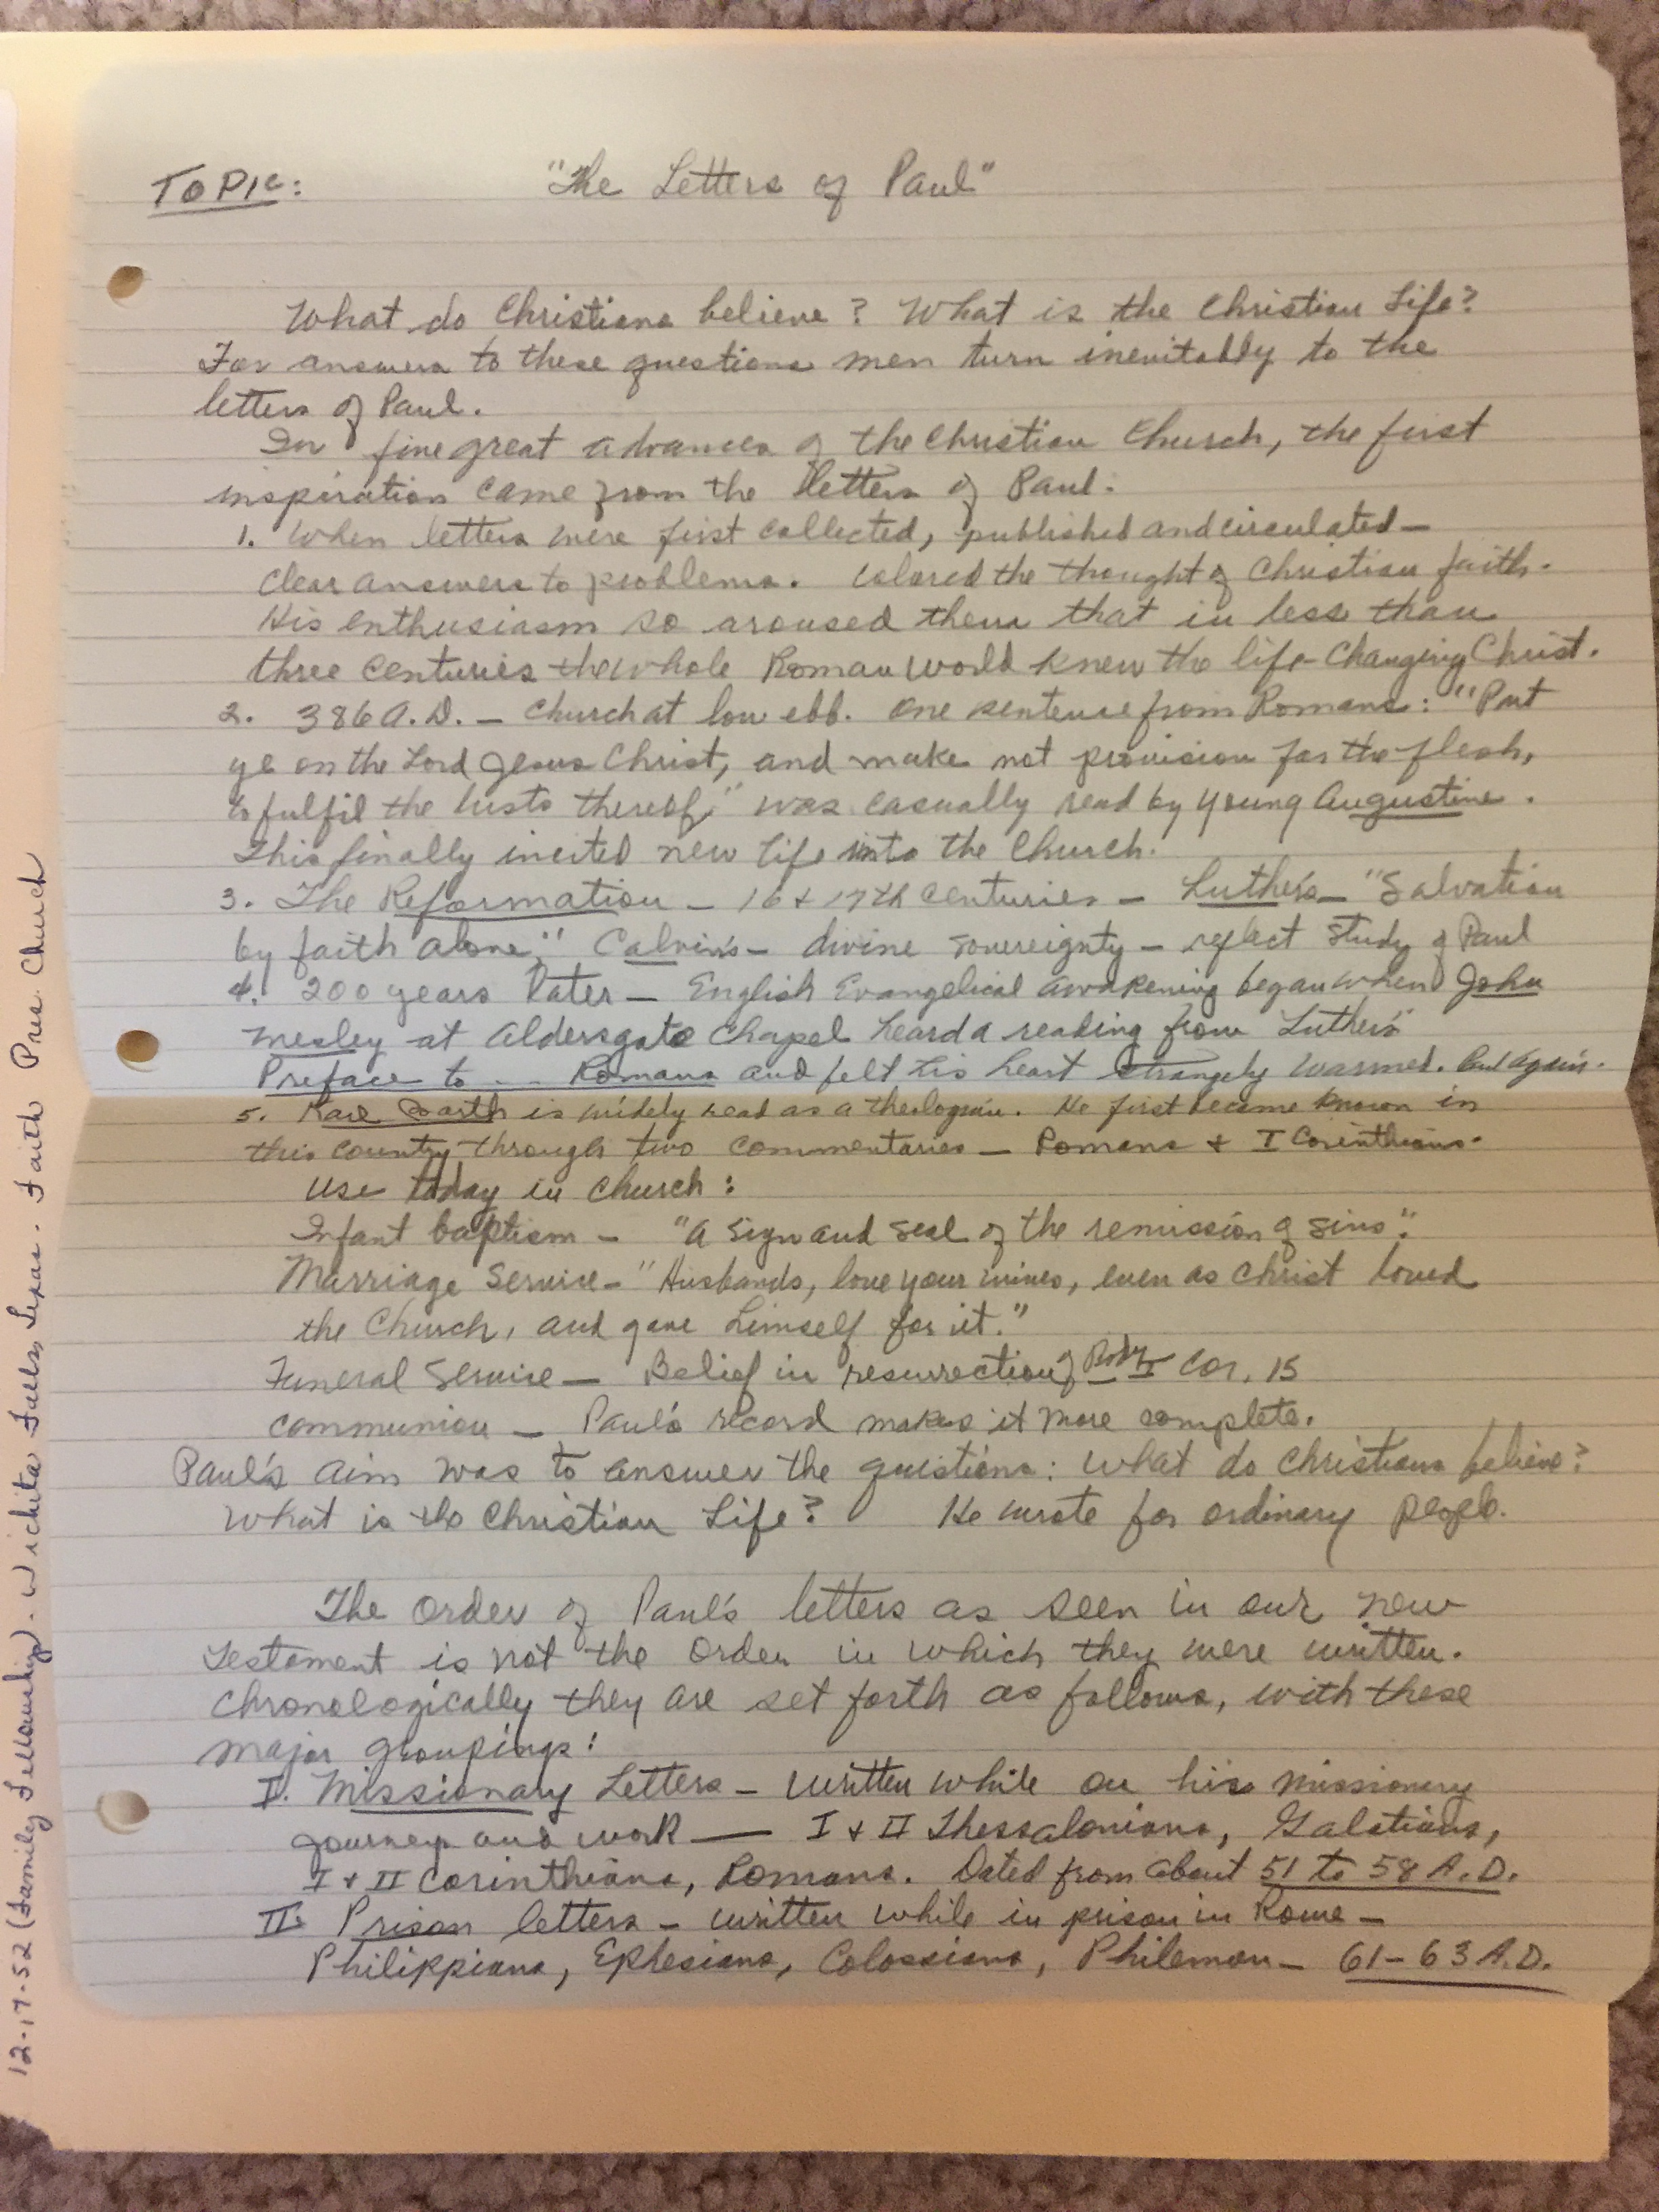 TOPIC: "The Letters of Paul"
What do Christians believe? What is the Christian Life?
For answers to these questions men turn inevitably to the
letters of Paul.
In five great advances of the Christian Church, the first
inspiration came from the letters of Paul.
1. When letters were first collected, published and circulated —
clear answers to problems. Colored the thought of Christian faith.
His enthusiasm so aroused them that in less than
three centuries the whole Roman world knew the life-changing Christ.
2. 386 A.D. — Church at low ebb. One sentence from Romans: "Put
ye on the Lord Jesus Christ, and make not provision for the flesh,
to fulfil the lusts thereof," was casually read by young Augustine.
This finally incited new life into the Church.
3. The Reformation — 16 & 17th centuries — Luther's — "Salvation
by faith alone," Calvin's — divine sovereignty — reflect study of Paul
4. 200 years later — English Evangelical awakening began when John
Wesley at Aldersgate Chapel heard a reading from Luther's
Preface to .. Romans and felt his heart strangely warmed.
5. Karl Barth is widely read as a theologian. He first became known in
this country through two commentaries — Romans & I Corinthians.
Use today in church:
Infant baptism — "a sign and seal of the remission of sins".
Marriage Service — "Husbands, love your wives, even as Christ loved
the Church, and gave himself for it."
Funeral Service — Belief in resurrection of Body I Cor. 15
Communion — Paul's record makes it more complete.
Paul's aim was to answer the questions: What do Christians believe?
What is the Christian Life? He wrote for ordinary people.
The order of Paul's letters as seen in our New
Testament is not the order in which they were written.
Chronologically they are set forth as follows, with these
major groupings:
I. Missionary Letters — written while on his missionary
journeys and work — I & II Thessalonians, Galatians,
I & II Corinthians, Romans. Dated from about 51 to 58 A.D.
II. Prison letters — written while in prison in Rome —
Philippians, Ephesians, Colossians, Philemon — 61-63 A.D.
12-17-52 (Family Fellowship). Wichita Falls, Texas. Faith Pres. Church